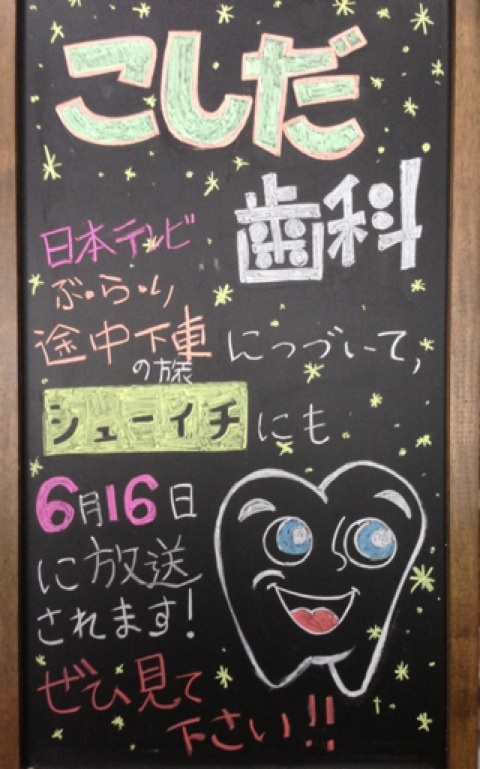 こしだ
歯科
日本テレビ
ぶ・ら・り
途中下車にっづいて,
の旅
シューイチにも
6月16日
に放送
されます!
ぜひ見て
下さい!!